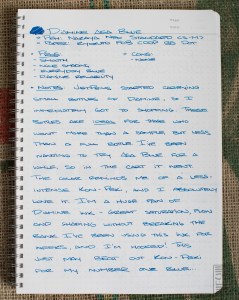 Diamine Asa Blue
• Pen: Nakaya Neo Standard CS-M
• Paper: Kokuyo
• Pros: • Cons:
• Smooth • None
• Nice shading
• Everyday blue
• Diamine reliability
• Notes: JetPens started carrying
small bottles of Diamine, so I
immediately got to shopping. These
bottles are ideal for those who
want more than a sample but less
than a full bottle. I've been
wanting to try Asa Blue for a
while, so in the cart it went.
The color reminds me of a less-
intense Kon-Peki, and I absolutely
love it. I'm a huge fan of
Diamine ink - great saturation, flow
and shading without breaking the
bank. I've been using this ink for
weeks, and I'm hooked! This
just may beat out Kon-Peki
for my number one blue.